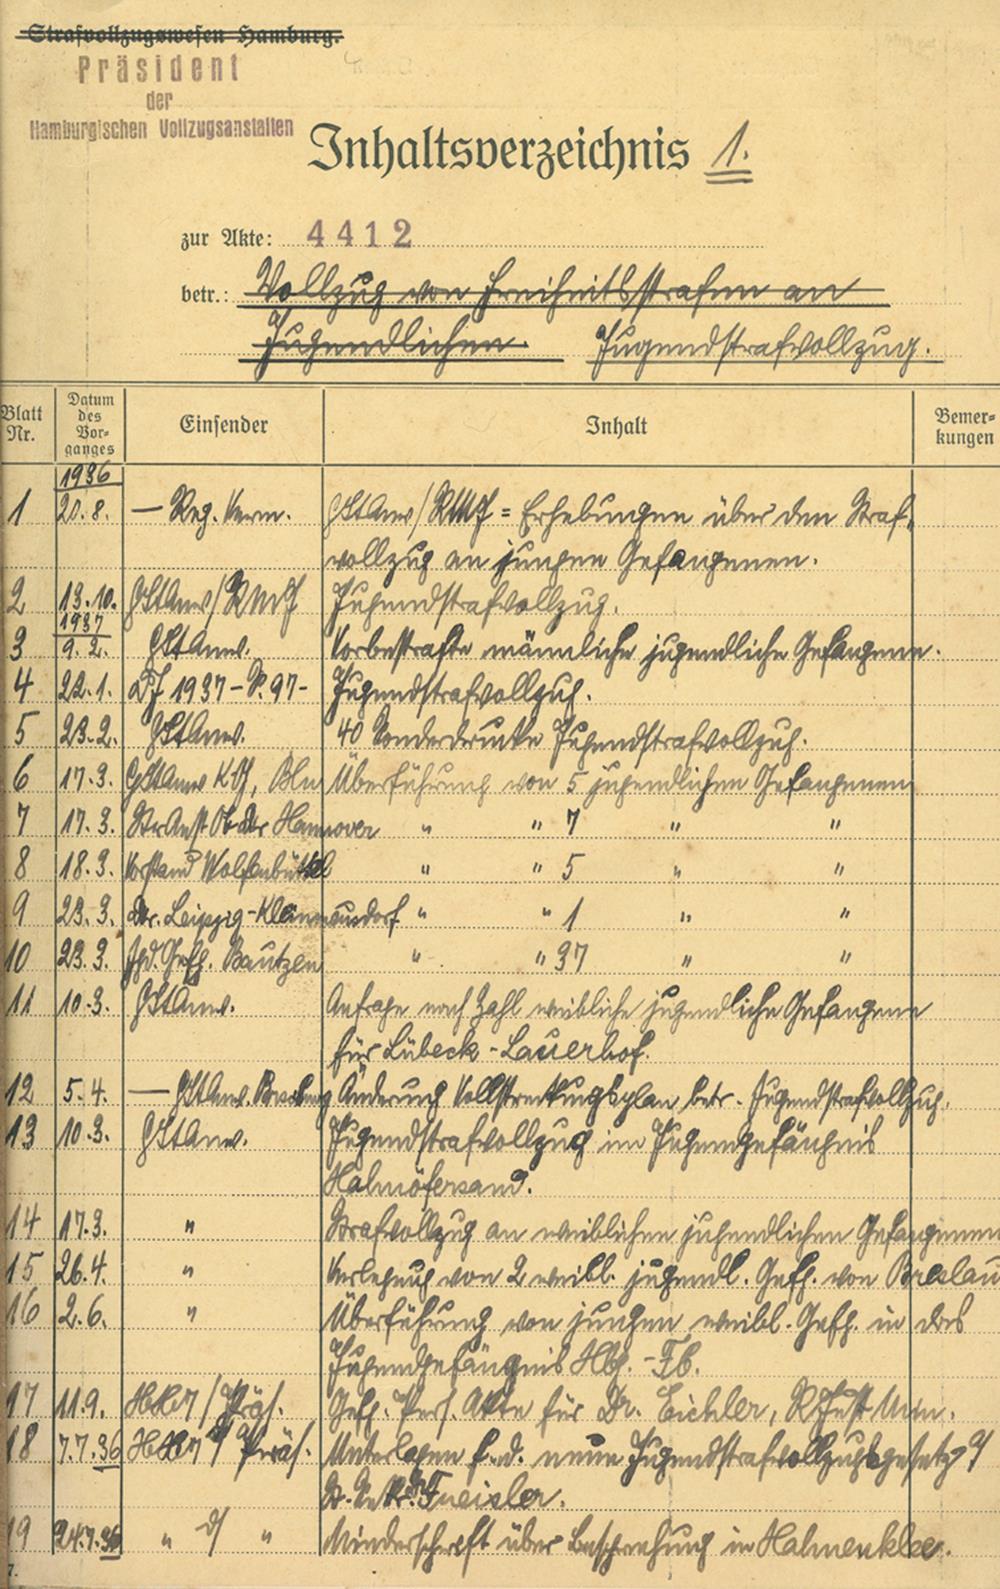 Strafvollzugswesen Hamburg.
Präsident
der
Hamburgischen Vollzugsanstalten
Inhaltsverzeichnis 1.
zur Akte: 4412
betr.: Vollzug von Freiheitsstrafen an
Jugendlichen. Jugendstrafvollzug.
Blatt Nr. Datum des Vor-ganges Einsender Inhalt Bemer-kungen
1936
1 20.8. — Reg. Verm. GStAnw/RMJ = Erhebungen über den Straf-
vollzug an jungen Gefangenen.
2 13.10. GStAnw/RMJ Jugendstrafvollzug.
1937
3 9.2. GStAnw. Vorbestrafte männliche jugendliche Gefangene.
4 22.1. DJ 1937 - S. 97 - Jugendstrafvollzug.
5 23.2. GStAnw. 40 Sonderdrucke Jugendstrafvollzug.
6 17.3. GStAnw KG, Bln Überführung von 5 jugendlichen Gefangenen
7 17.3. StrAnst Hannover " " 7 " "
8 18.3. Vorstand Wolfenbüttel " " 5 " "
9 23.3. Leipzig-Kleinmeusdorf " " 1 " "
10 23.3. Jgd. Gefg. Bautzen " " 37 " "
11 10.3. GStAnw. Anfrage nach Zahl weibliche jugendliche Gefangene
für Lübeck-Lauerhof.
12 5.4. — GStAnw. Änderung Vollstreckungsplan betr. Jugendstrafvollzug.
13 10.3. GStAnw. Jugendstrafvollzug im Jugendgefängnis
Hahnöfersand.
14 17.3. " Strafvollzug an weiblichen jugendlichen Gefangenen
15 26.4. " Verlegung von 2 weibl. jugendl. Gefg. von Breslau
16 2.6. " Überführung von jungen weibl. Gefg. in das
Jugendgefängnis Hbg. - Fb.
17 11.9. / Präs. Gefg. Pers. Akte für Dr. Eichler, RJustMin.
18 7.7.36 Präs. Unterlagen f. d. neue Jugendstrafvollzugsgesetz
St. Sekr. Dr. Freisler.
19 24.7.36 " " Niederschrift über Besprechung in Hahnenklee.
7.